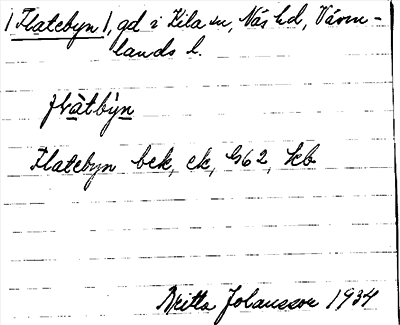 /Flatebyn/, gd i Kila sn, Näs hd, Värm-
lands l.
flàtbỳn
Flatebyn bek, ek, G62, kb
Britta Johansson 1934